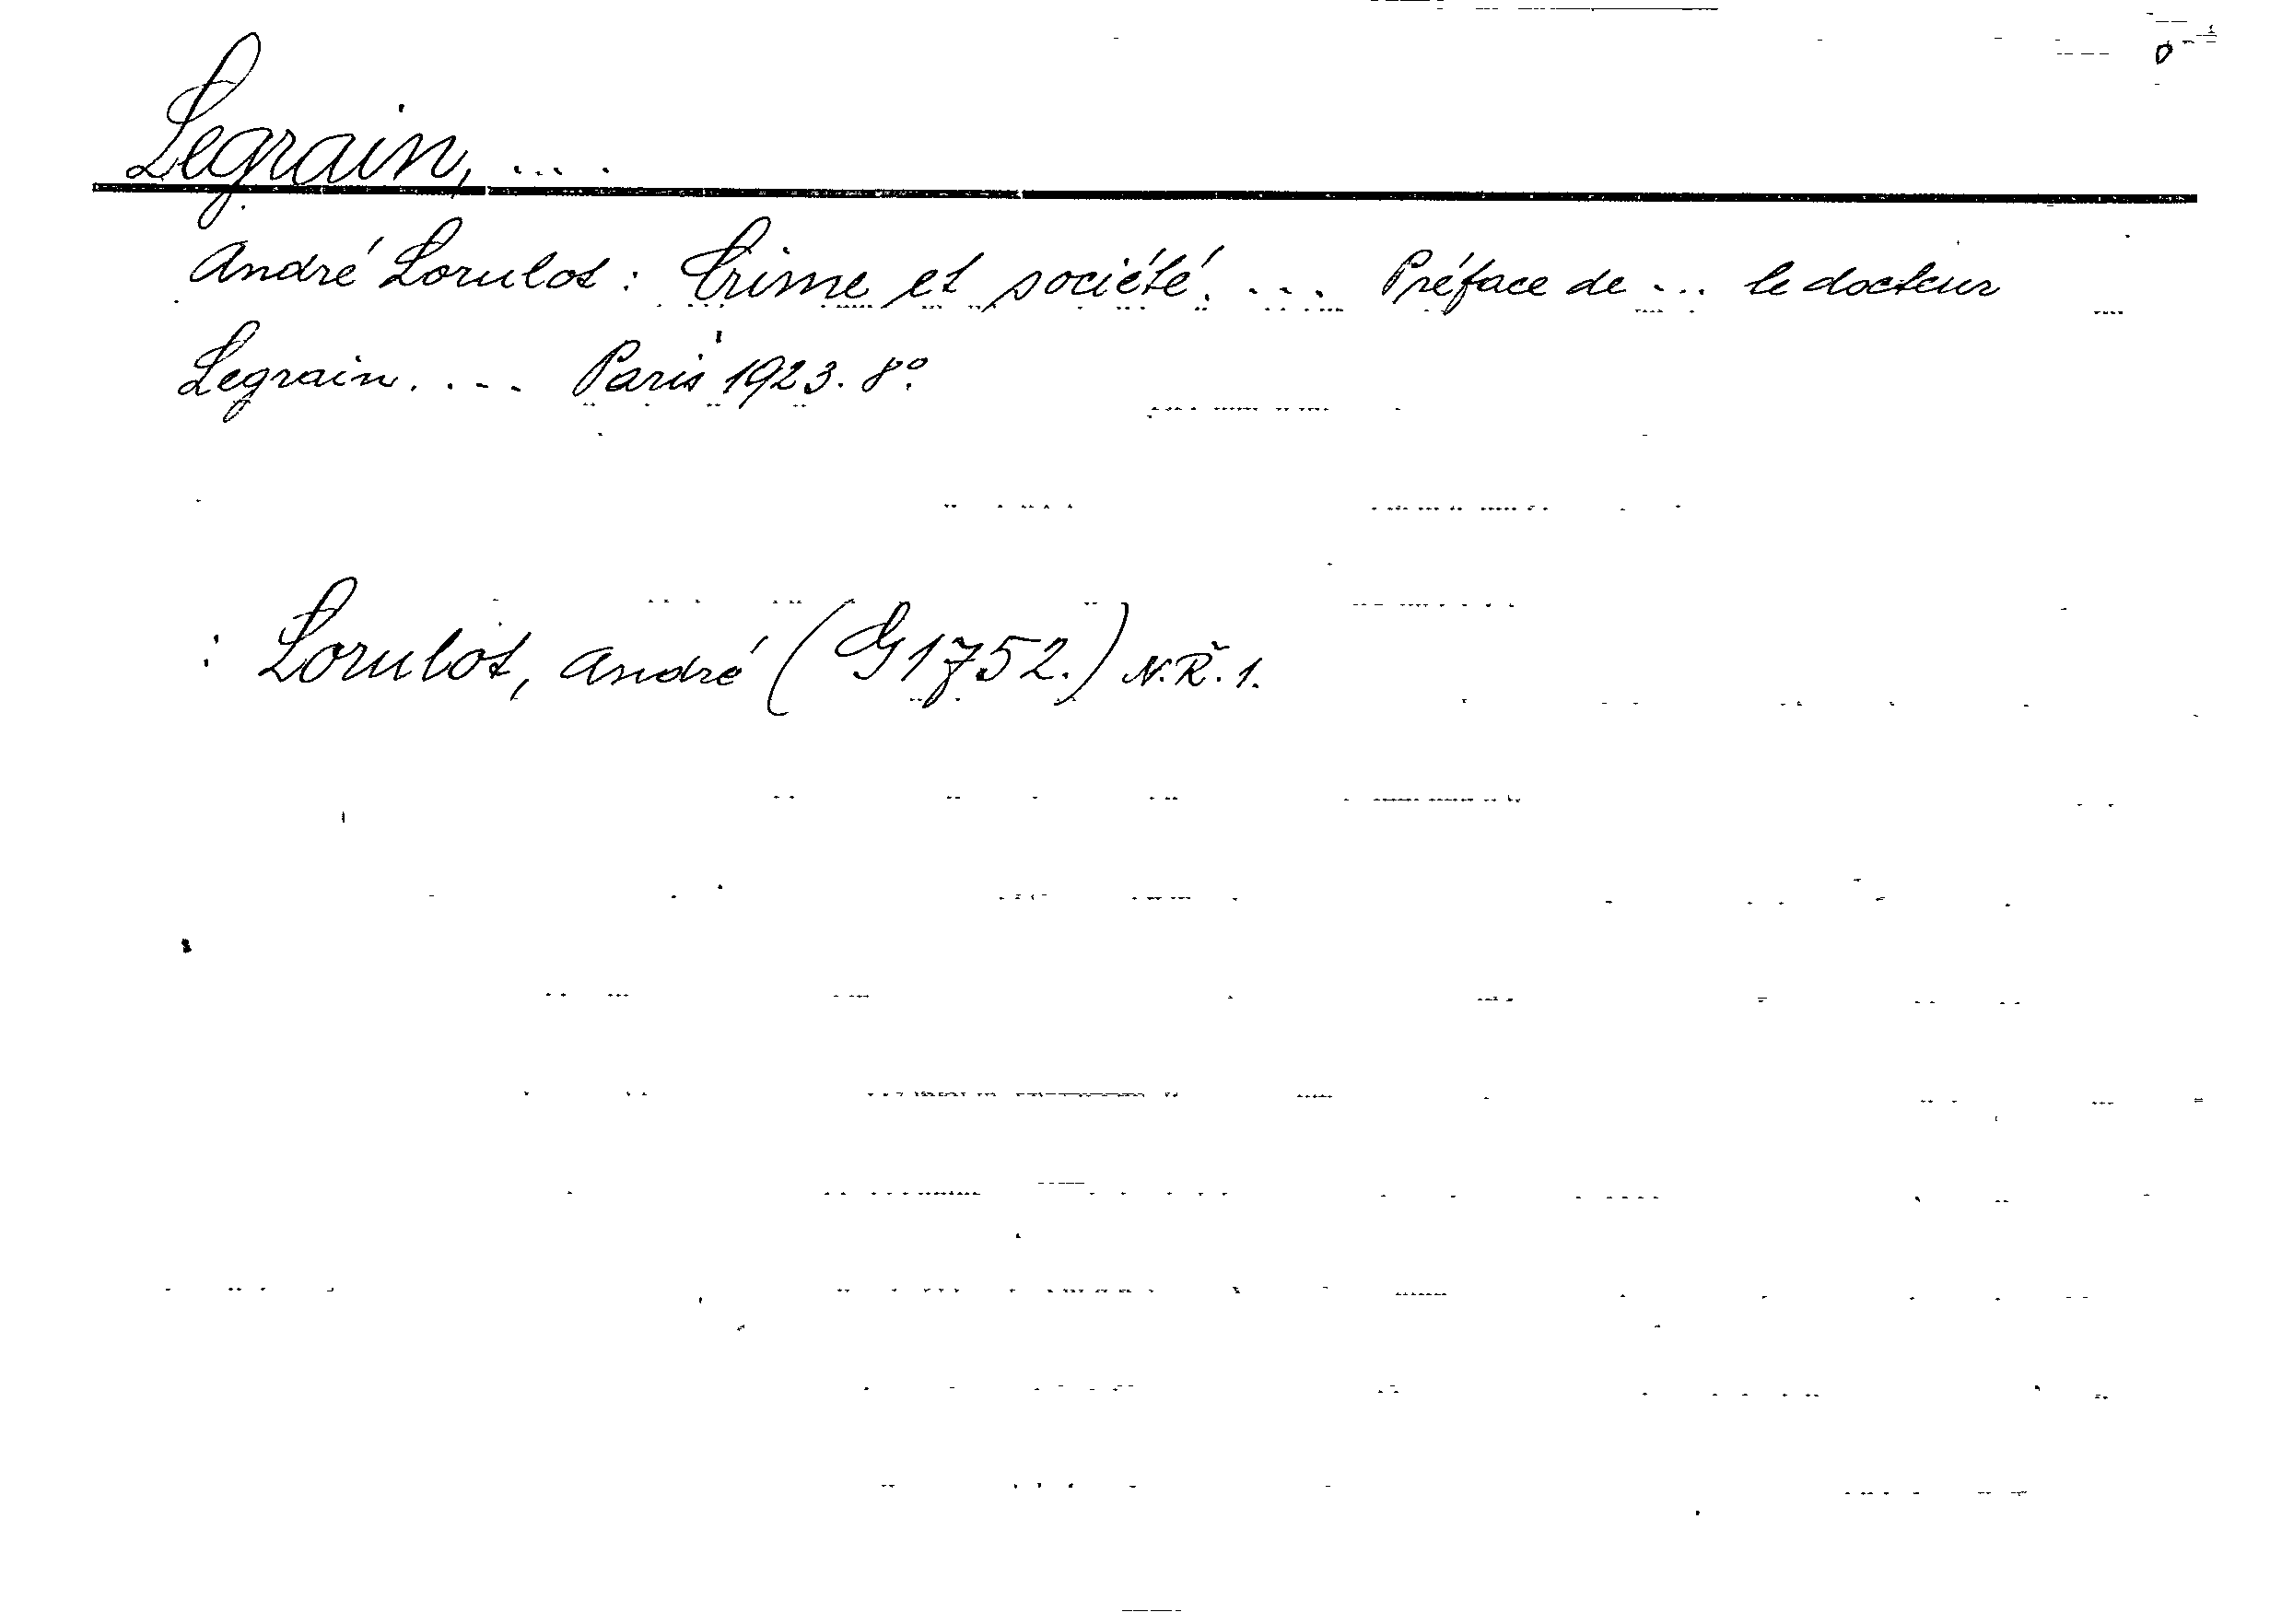 Legrain, ....
André Lorulot: Crime et société. ... Préface de ... le docteur
Legrain. ... Paris 1923. 8°.
: Lorulot, André (G 1752.) N.Ř.1.